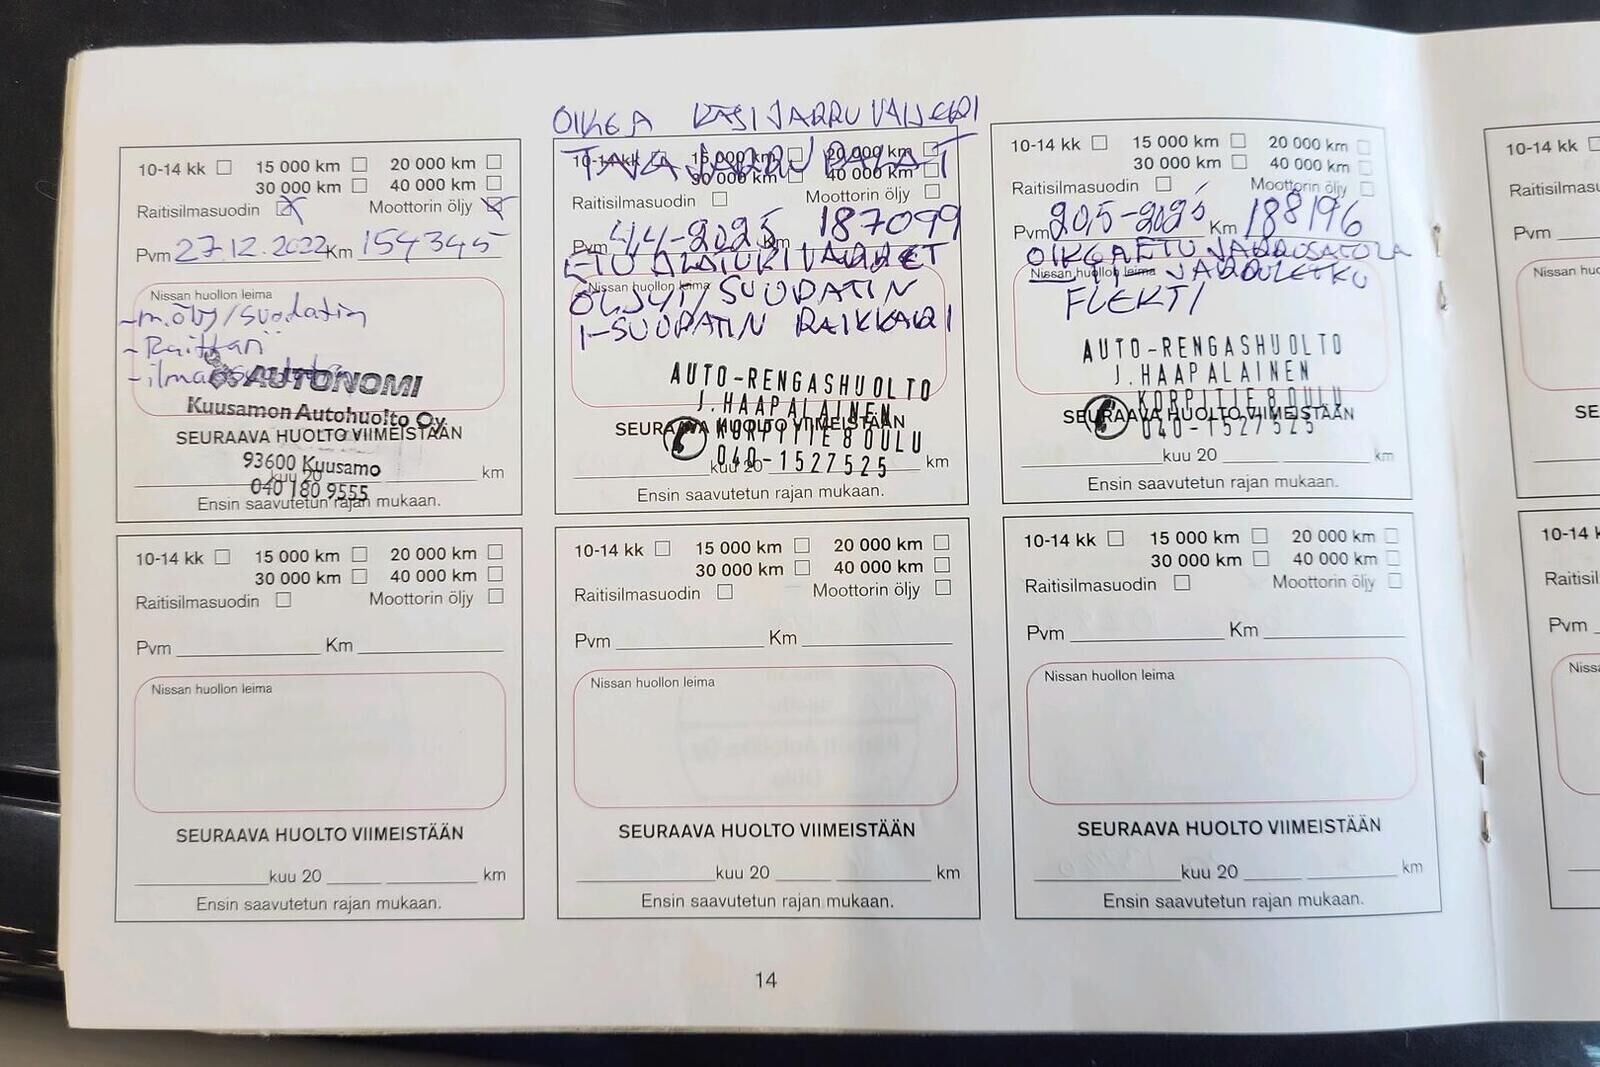 10-14 kk 15 000 km 20 000 km
30 000 km 40 000 km
Raitisilmasuodin Moottorin öljy
Pvm 27.12.2022 Km 154345
Nissan huollon leima
-m.öljy/suodatin
-Raittari
AUTONOMI
Kuusamon Autohuolto Oy
SEURAAVA HUOLTO VIIMEISTÄÄN
93600 Kuusamo
kuu 20 km
040 180 9555
Ensin saavutetun rajan mukaan.
OIKEA KÄSIJARRUVAIJERI
TAKAJARRUPALAT
10-14 kk 15 000 km 20 000 km
30 000 km 40 000 km
Raitisilmasuodin Moottorin öljy
Pvm 4.4-2025 Km 187099
ETU ALATUKIVARRET
Nissan huollon leima
ÖLJYT/SUODATIN
I-SUODATIN RAIKKARI
AUTO-RENGASHUOLTO
J.HAAPALAINEN
SEURAAVA HUOLTO VIIMEISTÄÄN
KORPITIE 8 OULU
040-1527525
kuu 20 km
Ensin saavutetun rajan mukaan.
10-14 kk 15 000 km 20 000 km
30 000 km 40 000 km
Raitisilmasuodin Moottorin öljy
Pvm 205-2025 Km 188196
OIKEA ETU JARRUSATULA
Nissan huollon leima JARRULETKU
FLEKTI
AUTO-RENGASHUOLTO
J.HAAPALAINEN
KORPITIE 8 OULU
SEURAAVA HUOLTO VIIMEISTÄÄN
040-1527525
kuu 20 km
Ensin saavutetun rajan mukaan.
10-14 kk
Raitisilmasu
Pvm
Nissan hu
SE
10-14 kk 15 000 km 20 000 km
30 000 km 40 000 km
Raitisilmasuodin Moottorin öljy
Pvm Km
Nissan huollon leima
SEURAAVA HUOLTO VIIMEISTÄÄN
kuu 20 km
Ensin saavutetun rajan mukaan.
10-14 kk 15 000 km 20 000 km
30 000 km 40 000 km
Raitisilmasuodin Moottorin öljy
Pvm Km
Nissan huollon leima
SEURAAVA HUOLTO VIIMEISTÄÄN
kuu 20 km
Ensin saavutetun rajan mukaan.
10-14 kk 15 000 km 20 000 km
30 000 km 40 000 km
Raitisilmasuodin Moottorin öljy
Pvm Km
Nissan huollon leima
SEURAAVA HUOLTO VIIMEISTÄÄN
kuu 20 km
Ensin saavutetun rajan mukaan.
10-14 k
Raitisil
Pvm
Niss
14